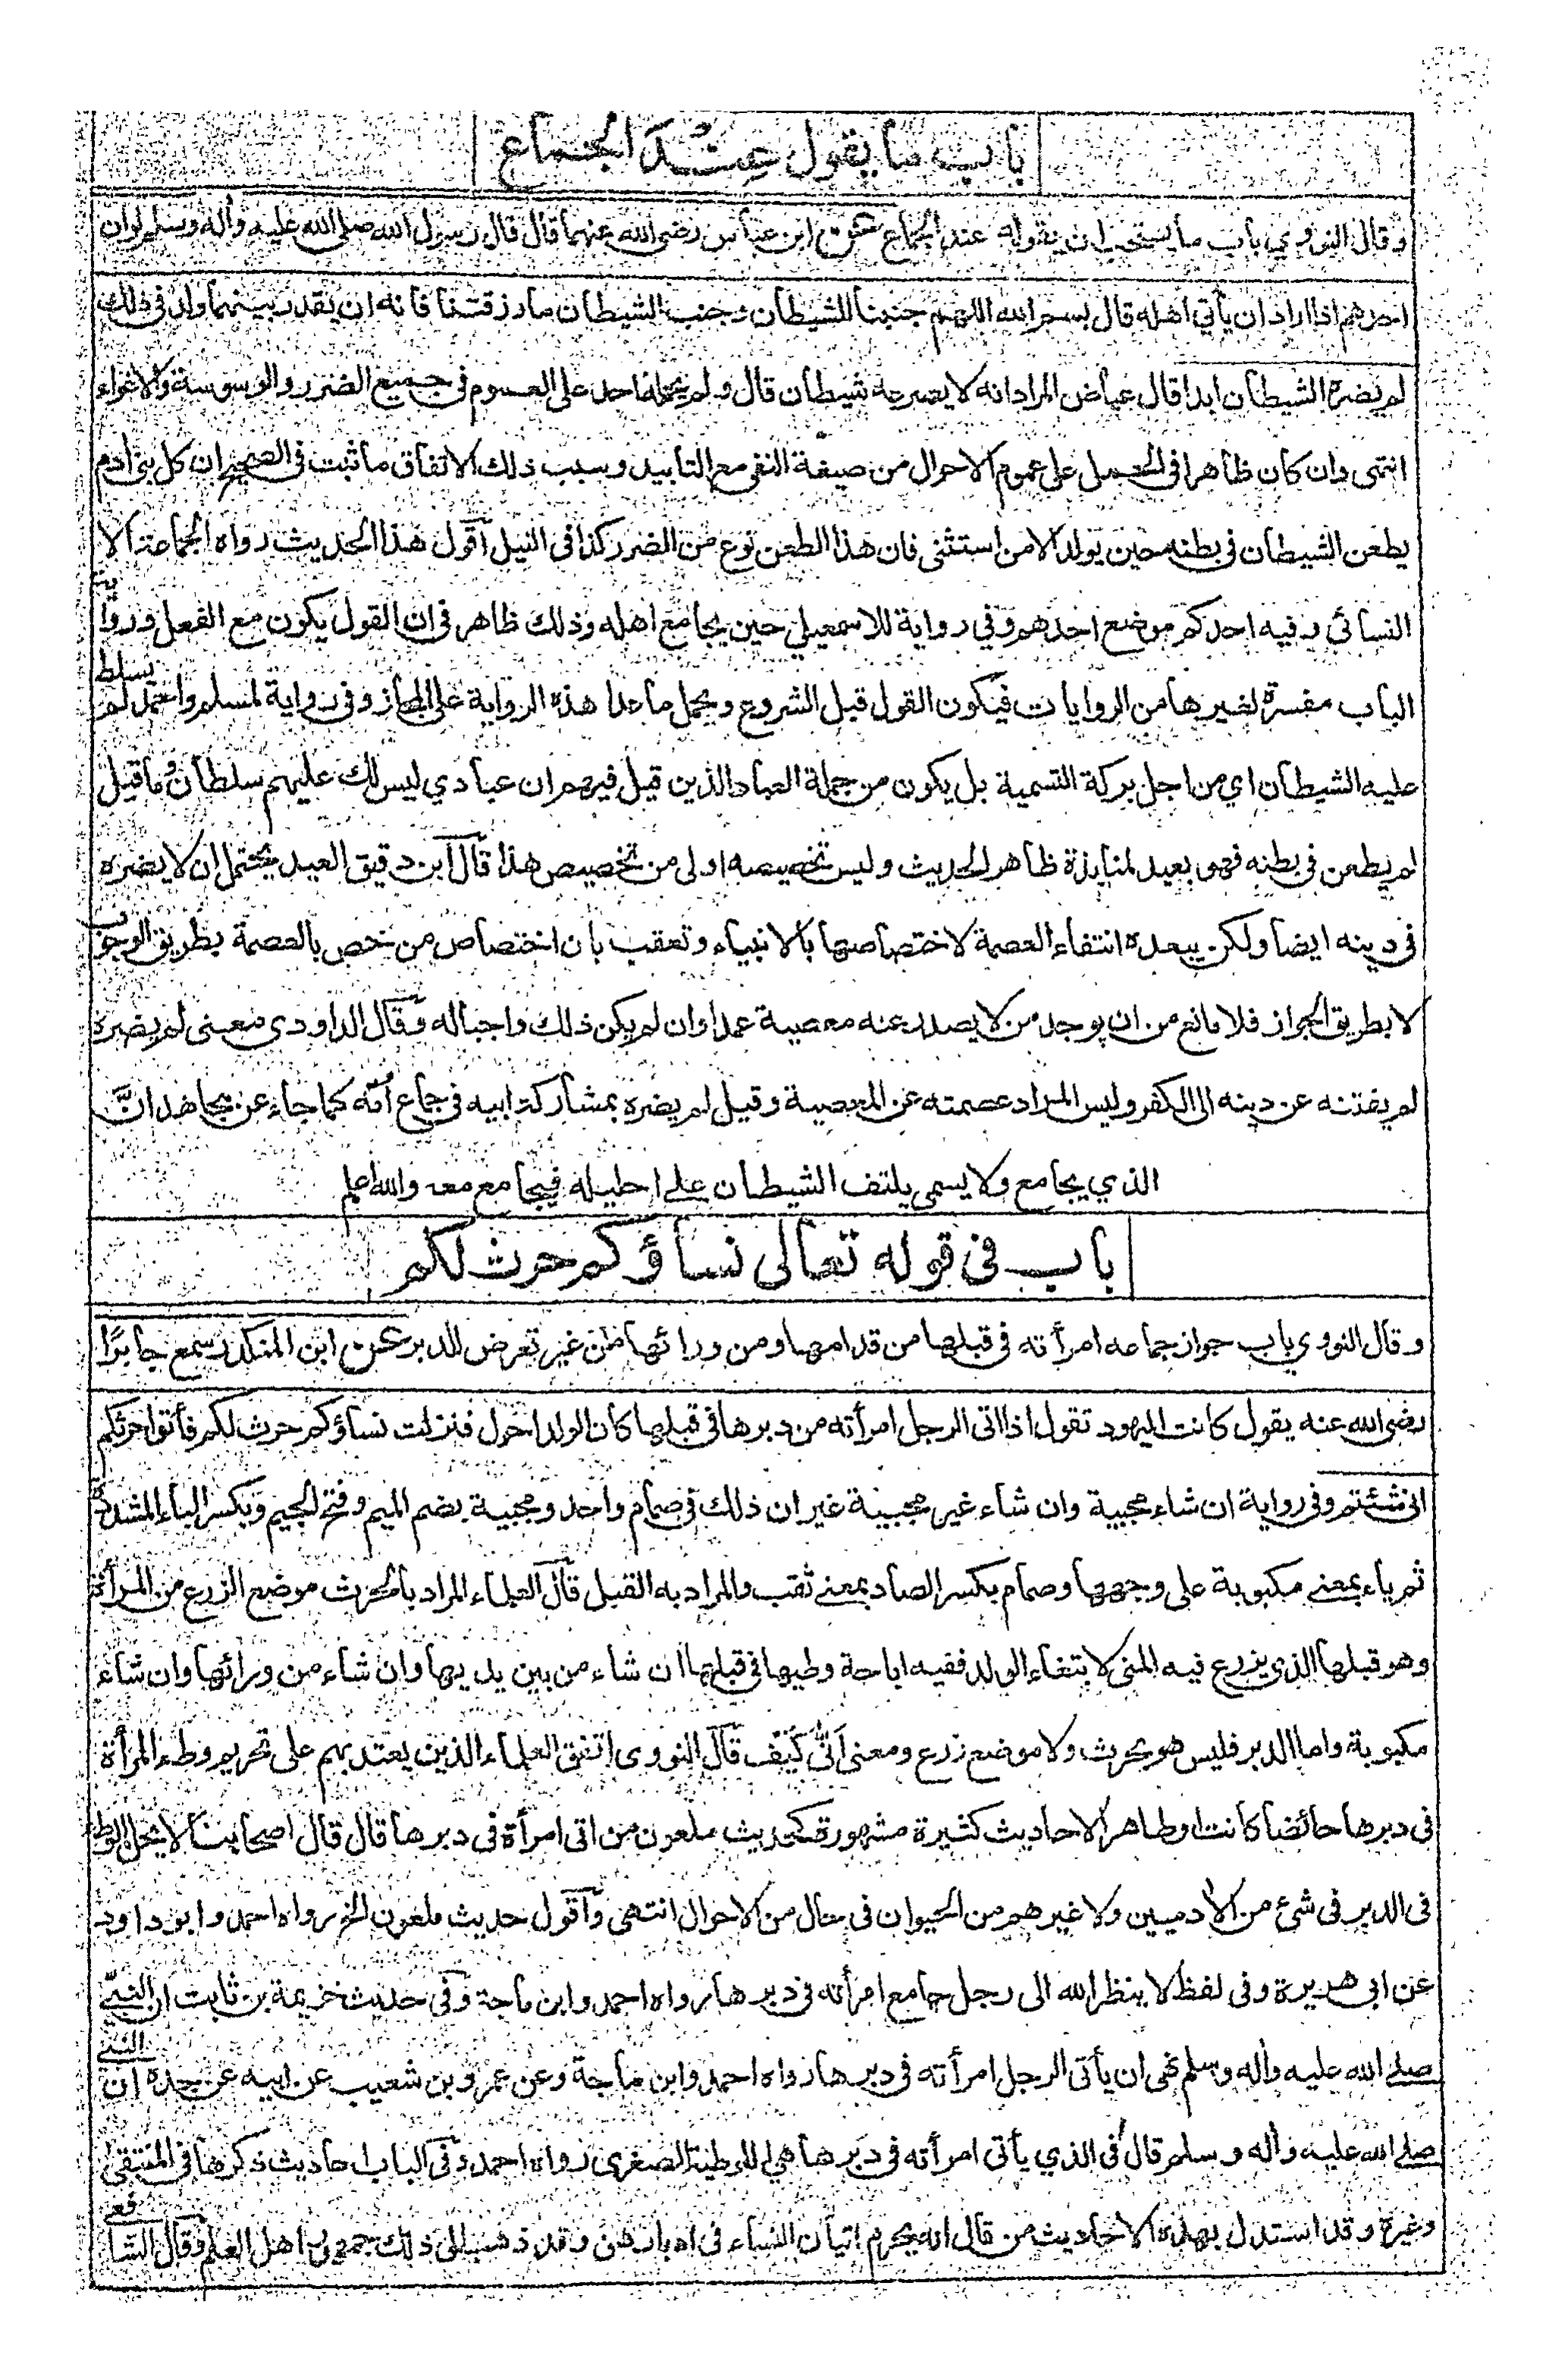 باب ما يقول عند الجماع
وقال النووي باب ما يستحب ان يقوله عند الجماع عن ابن عباس رضي الله عنهما قال قال رسول الله صلى الله عليه وأله وسلم لوان
احدهم اذا اراد ان يأتي اهله قال بسم الله اللهم جنبنا الشيطان وجنب الشيطان ما رزقتنا فانه ان يقدر بينهما ولد في ذلك
لم يضره الشيطان ابدا قال عياض المراد انه لا يصرعه شيطان قال ولم يحمله احد على العموم في جميع الضرر والوسوسة والاغواء
انتهى وان كان ظاهرا في الحمل على عموم الاحوال من صيغة النفي مع التأبيد وسبب ذلك الاتفاق ما ثبت في الصحيح ان كل بني أدم
يطعن الشيطان في بطنه حين يولد الا من استثنى فان هذا الطعن نوع من الضرر كذا في النيل أقول هذا الحديث رواه الجماعة الا
النسائي وفيه احدكم موضع احدهم وفي رواية للاسمعيلي حين يجامع اهله وذلك ظاهر في ان القول يكون مع الفعل ورواية
الباب مفسرة لغيرها من الروايات فيكون القول قبل الشروع ويحمل ما عدا هذه الرواية على المجاز وفي رواية لمسلم واحمد لم يسلط
عليه الشيطان اي من اجل بركة التسمية بل يكون من جملة العباد الذين قيل فيهم ان عبادي ليس لك عليهم سلطان وما قيل
لم يطعن في بطنه فهو بعيد لمنابذة ظاهر الحديث وليس تخصيصه اولى من تخصيص هذا قال ابن دقيق العيد يحتمل ان لا يضره
في دينه ايضا ولكن يبعده انتفاء العصمة لاختصاصها بالانبياء وتعقب بان اختصاص من خص بالعصمة بطريق الوجوب
لا بطريق الجواز فلا مانع من ان يوجد من لا يصدر عنه معصية عمدا وان لم يكن ذلك واجبا له وقال الداودي معنى لم يضره
لم يفتنه عن دينه الى الكفر وليس المراد عصمته عن المعصية وقيل لم يضره بمشاركة ابيه في جماع أمه كما جاء عن مجاهد انّ
الذي يجامع ولا يسمي يلتف الشيطان على احليله فيجامع معه والله اعلم
باب في قوله تعالى نساؤكم حرث لكم
وقال النووي باب جواز جماعه امرأته في قبلها من قدامها ومن ورائها من غير تعرض للدبر عن ابن المنكدر سمع جابرًا
رضي الله عنه يقول كانت اليهود تقول اذا اتى الرجل امرأته من دبرها في قبلها كان الولد احول فنزلت نساؤكم حرث لكم فأتوا حرثكم
انى شئتم وفي رواية ان شاء مجبية وان شاء غير مجبية غير ان ذلك في صمام واحد ومجبية بضم الميم وفتح الجيم وبكسر الباء المشددة
ثم ياء بمعنى مكبوبة على وجهها وصمام بكسر الصاد بمعنى ثقب والمراد به القبل قال العلماء المراد بالحرث موضع الزرع من المرأة
وهو قبلها الذي يزرع فيه المنى لابتغاء الولد ففيه اباحة وطيها في قبلها ان شاء من بين يديها وان شاء من ورائها وان شاء
مكبوبة واما الدبر فليس هو بحرث ولا موضع زرع ومعنى أنّى كَيْفَ قال النووي اتفق العلماء الذين يعتد بهم على تحريم وطء المرأة
في دبرها حائضا كانت او طاهرا لاحاديث كثيرة مشهورة كحديث ملعون من اتى امرأة في دبرها قال قال اصحابنا لا يحل الوطء
في الدبر في شئ من الأدميين ولا غيرهم من الحيوان في حال من الاحوال انتهى وأقول حديث ملعون الخ رواه احمد وابو داود
عن ابي هريرة وفي لفظ لا ينظر الله الى رجل جامع امرأته في دبرها رواه احمد وابن ماجة وفي حديث خزيمة بن ثابت ان النبي
صلى الله عليه وأله وسلم نهى ان يأتي الرجل امرأته في دبرها رواه احمد وابن ماجة وعن عمرو بن شعيب عن ابيه عن جده ان النبي
صلى الله عليه وأله وسلم قال في الذي يأتي امرأته في دبرها هي اللوطية الصغرى رواه احمد وفي الباب احاديث ذكرها في المنتقى
وغيرة وقد استدل بهذه الاحاديث من قال انه يحرم اتيان النساء في ادبارهن وقد ذهب الى ذلك جمهور اهل العلم وقال الشافعي